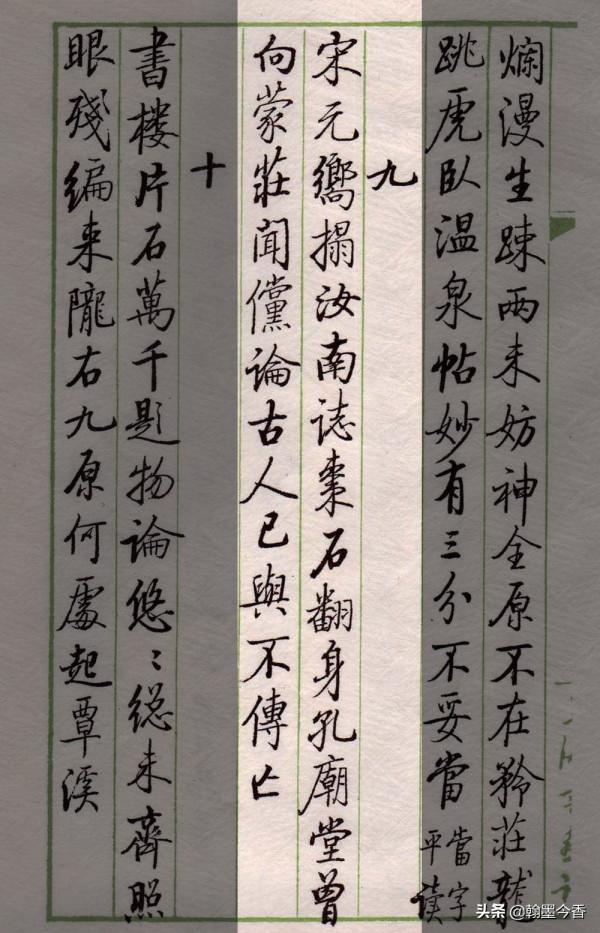 爛漫生疎兩未妨神全原不在矜莊龍
跳虎臥温泉帖妙有三分不妥當
當字
平讀
九
宋元嚮搨汝南誌棗石翻身孔廟堂曾
向蒙莊聞儻論古人已與不傳亡
十
書樓片石萬千題物論悠〻総未齊照
眼殘編来隴右九原何處起覃溪
头条 @翰墨今香